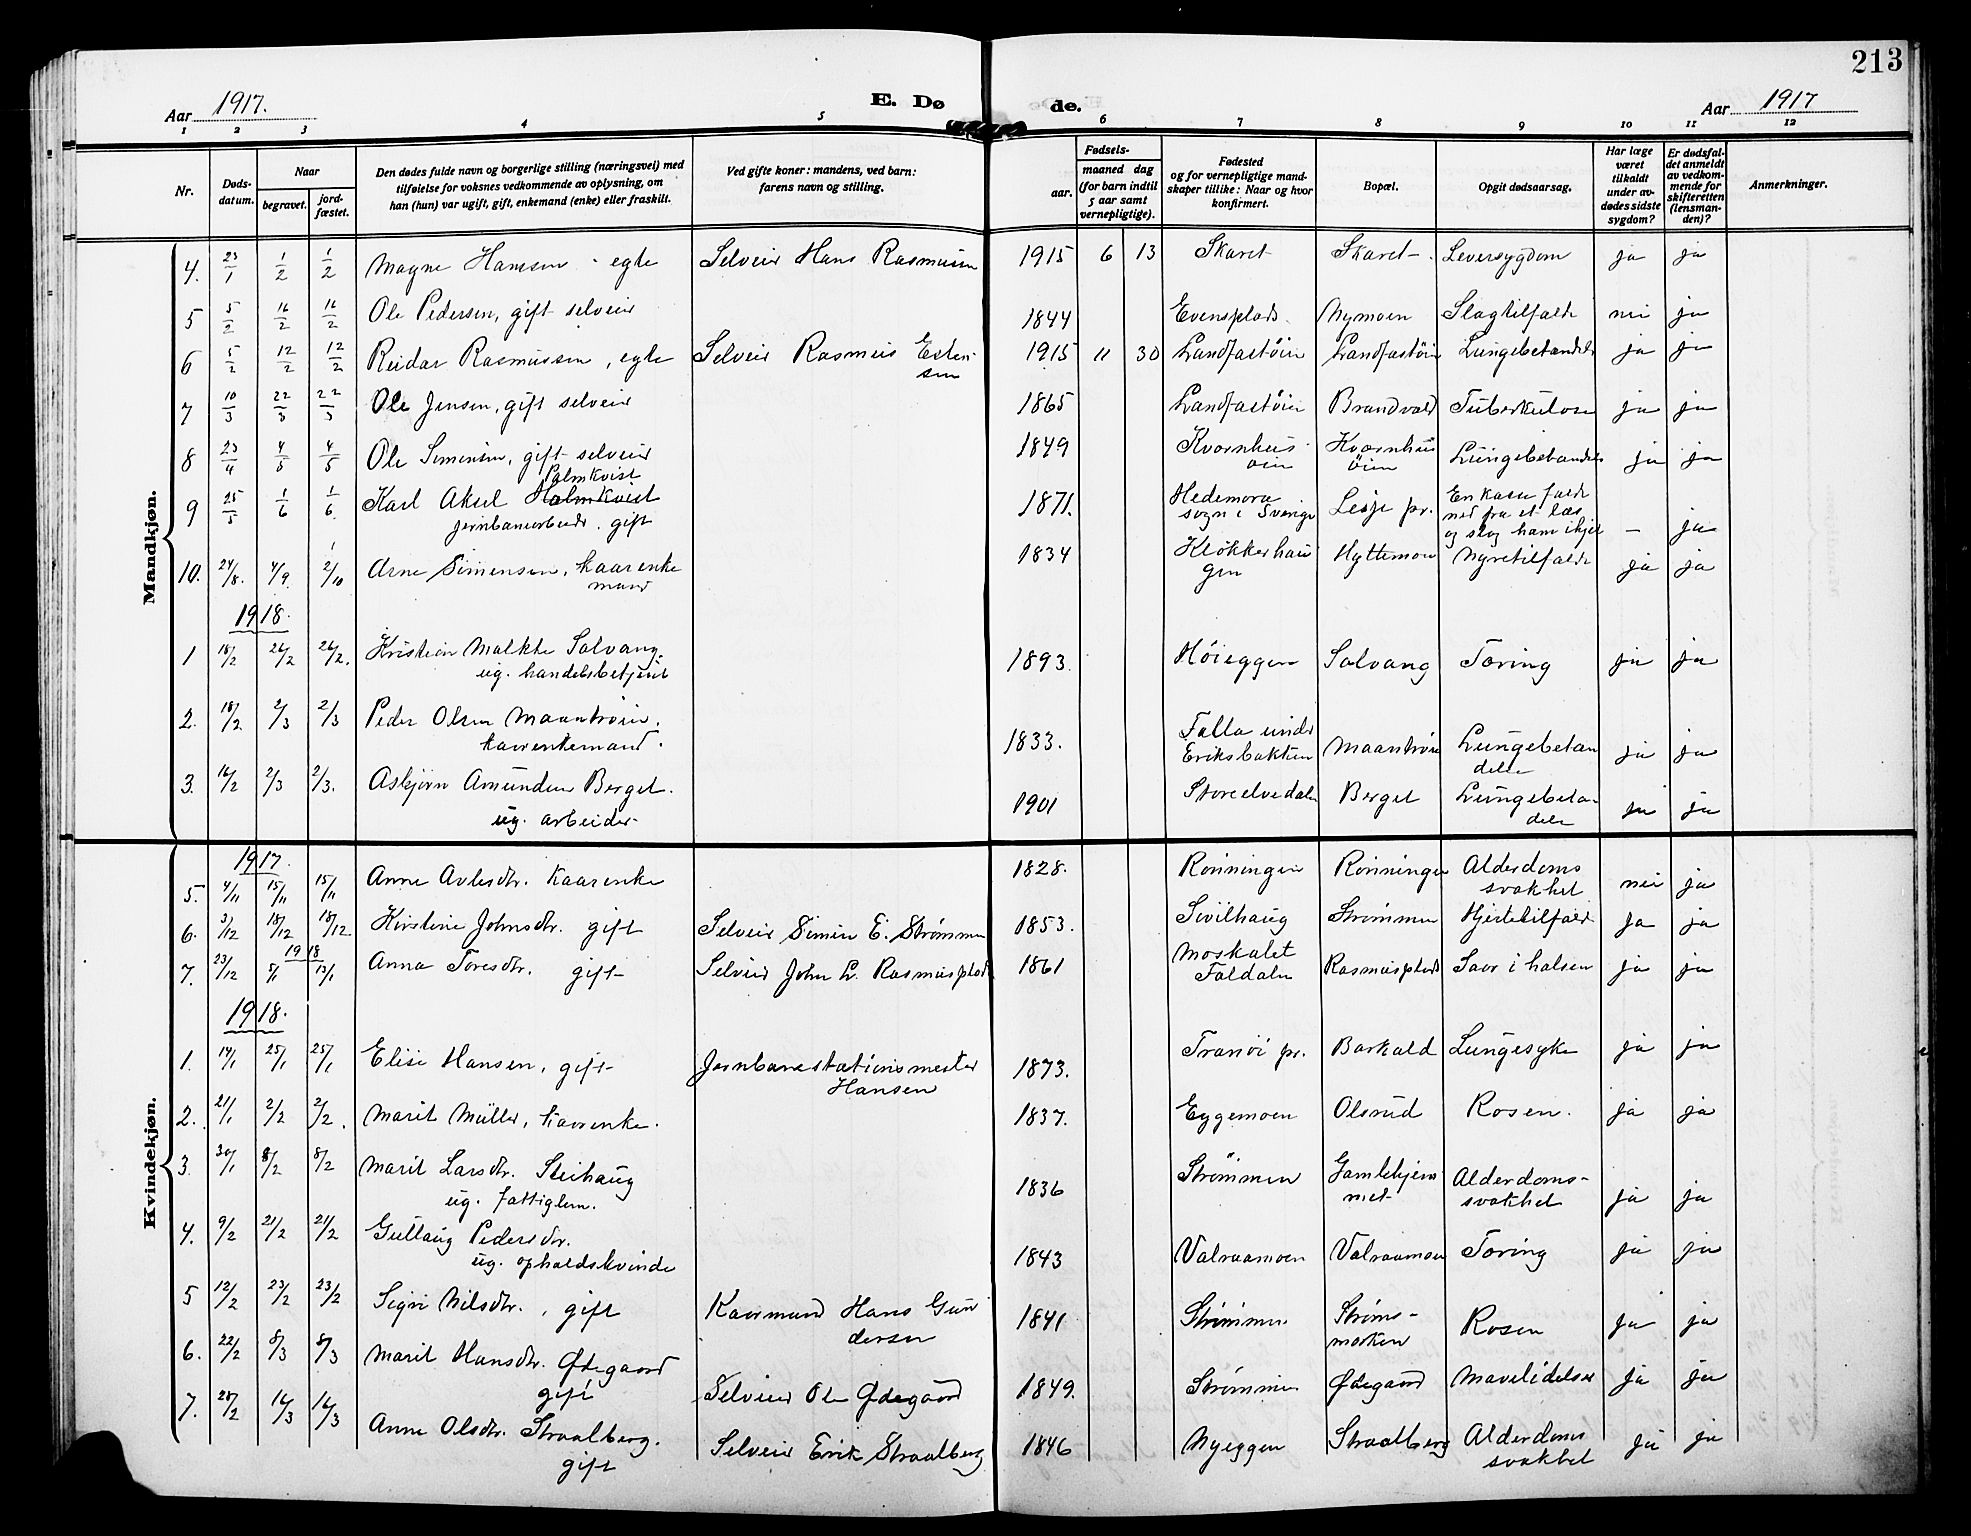 213
Aar 1917. E. Dø de. Aar 1917
1 2 3 4 5 6 7 8 9 10 11 12
Nr. Døds-datum. Naar begravet. jord-fæstet. Den dødes fulde navn og borgerlige stilling (næringsvei) med tilføielse for voksnes vedkommende av oplysning, om han (hun) var ugift, gift, enkemand (enke) eller fraskilt. Ved gifte koner: mandens, ved barn: farens navn og stilling. Fødsels- aar. maaned dag (for barn indtil 5 aar samt vernepligtige). Fødested og for vernepligtige mand-skaper tillike: Naar og hvor konfirmert. Bopæl. Opgit dødsaarsag. Har læge været tilkaldt under av-dødes sidste sygdom? Er dødsfal-det anmeldt av vedkom-mende for skifteretten (lensman-den)? Anmerkninger.
Mandkjøn.
4. 23/1 1/2 1/2 Magne Hansen - egte Selveier Hans Rasmusen 1915 6 13 Skaret Skaret Leversygdom ja ja
5 5/2 16/2 16/2 Ole Pedersen, gift selveier 1844 Evensplads Nymoen Slagtilfælde nei ja
6 5/2 12/2 12/2 Reidar Rasmussen, egte Selveier Rasmus Esten-
sen 1915 11 30 Landfastøien Landfastøien Lungebetændelse ja ja
7 10/3 22/3 22/3 Ole Jensen, gift selveier 1865 Landfastøien Brandvold Tuberkulose ja ja
8 23/4 4/5 4/5 Ole Simensen, gift selveier 1849 Kvornhus
øien Kvornhus
øien Lungebetændelse ja ja
Palmkvist
9 25/5 1/6 1/6 Karl Aksel Holmkvist
jernbanearbeider. gift 1871. Hedemora
sogn i Sverige Lesje pr. En kasse faldt
ned fra et læs
og slog ham ihjel – ja
10. 24/8. 4/9. 1 2/10 Arne Simensen, kaarenke
mand 1834 Kløkkerhau
gen Hyttemoen Nyretilfælde ja ja
1918.
1 18/2 26/2 26/2. Kristian Malkte Solvang.
ug. handelsbetjent 1893. Høieggen Solvang Tæring ja ja
2. 18/2 2/3 2/3 Peder Olsen Maantrøen.
kaarenkemand. 1833. Falla under
Eriksbakken Maantrøen Lungebetæn
delse ja ja
3. 16/2 2/3 2/3. Asbjørn Amundsen Berget.
ug. arbeider 1901 Storeelvedalen Berget Lungebetæn
delse ja ja
Kvindekjøn.
1917.
5. 4/11 15/11 15/11 Anne Avlesdtr. kaarenke 1828. Rønningen Rønningen Alderdoms
svakhet nei ja
6. 3/12 18/12 18/12 Kirstine Johnsdtr. gift Selveier Simen E. Strømmen 1853. Sivilhaug Strømmen Hjertetilfælde ja ja
1918
7. 23/12 5/1 13/1 Anna Toresdtr. gift Selveier John L. Rasmusplads 1861 Moskalet
Foldalen Rasmusplads Saar i halsen ja ja
1918.
1. 14/1 25/1 25/1 Elise Hansen, gift Jernbanestationsmester
Hansen 1873. Tranøi pr. Barkald Lungesyke ja ja
2. 21/1 2/2 2/2. Marit Müller, kaarenke. 1837. Eggemoen Olsrud Rosen. ja ja
3. 30/1 8/2 8/2 Marit Larsdtr. Steihaug
ug. fattiglem. 1836 Strømmen Gamlehjem
met Alderdoms-
svakhet ja ja
4. 9/2 21/2 21/2 Gullaug Pedersdtr.
ug. opholdskvinde 1843 Valraamoen Valraamoen Tæring ja ja
5 12/2 23/2 23/2 Sigri Nilsdtr., gift Kaarmand Hans Gun
dersen 1841 Strømmen Strøms-
marken Rosen ja ja
6. 22/2 8/3 8/3 Marit Hansdtr. Ødegaard
gift Selveier Ole Ødegaard 1849. Strømmen Ødegaard Mavelidelse ja ja
7. 28/2 16/3 16/3 Anne Olsdtr. Straalberg.
gift Selveier Erik Straalberg 1846 Nyeggen Straalberg Alderdoms
svakhet ja ja